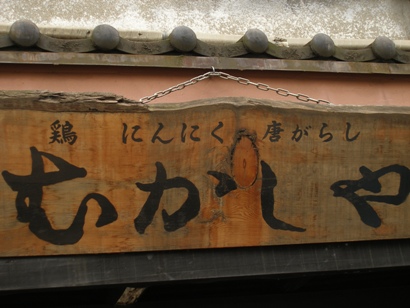 鶏 にんにく 唐がらし
むかしや